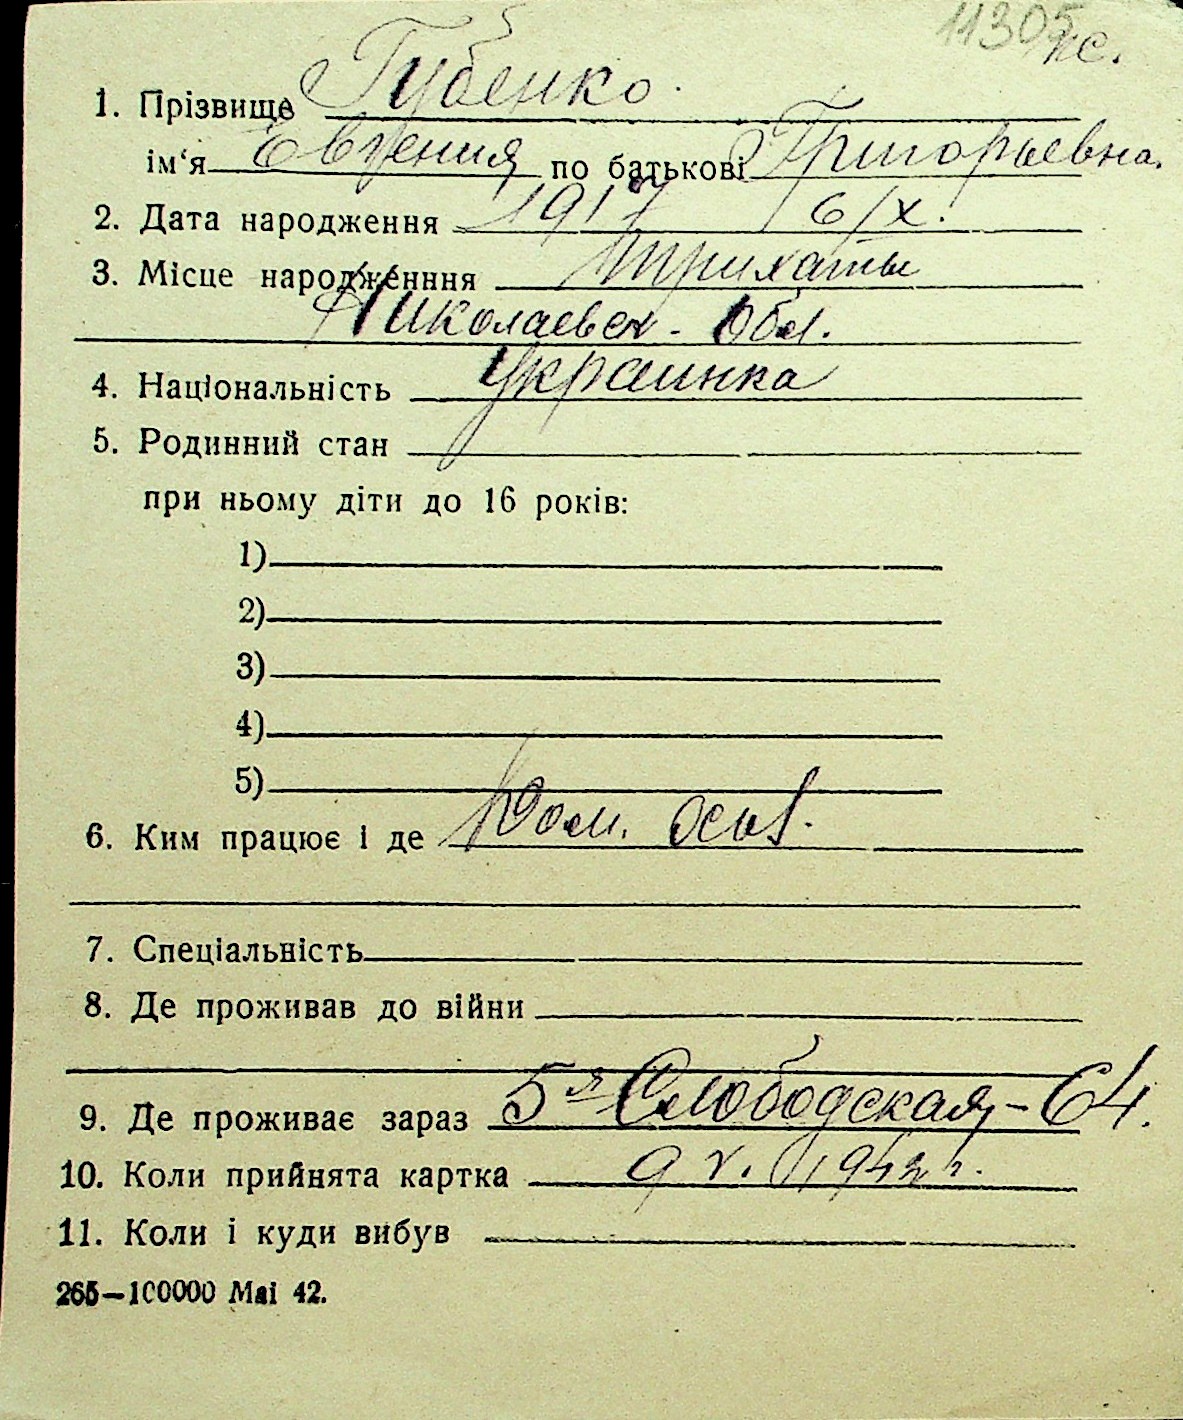 11305
пс.
1. Прізвище Губенко
ім‘я Евгения по батькові Григорьевна.
2. Дата народження 1917 6/X.
3. Місце народженння Трихаты
Николаевск. Обл.
4. Національність Украинка
5. Родинний стан
при ньому діти до 16 років:
1)
2)
3)
4)
5)
6. Ким працює і де Дом.
7. Спеціальність
8. Де проживав до війни
9. Де проживає зараз 5я Слободская-64.
10. Коли прийнята картка 9 V. 1942 г.
11. Коли і куди вибув
265—100000 Mai 42.